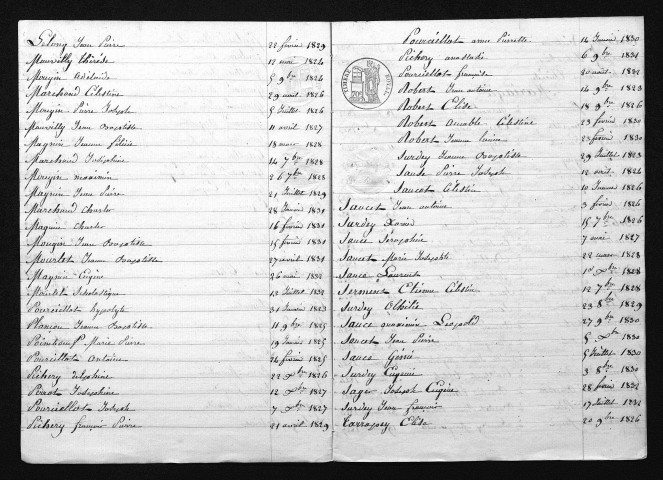 Lelong Jean Pierre 22 février 1829
Mauvilly thérèse 12 mai 1824
Mougin adélaïde 5 9bre 1826
Marchand Célestine 29 avril 1826
Mougin Pierre Joseph 5 Juillet 1826
Mauvilly Jean Baptiste 11 avril 1827
Magnin Jeanne félicie 18 mars 1828
Marchand Joséphine 14 7bre 1828
Mougin maximin 26 7bre 1828
Magnin Jean Pierre 21 Juillet 1829
Marchand Charles 28 Janvier 1831
Magnin Charles 16 février 1831
Mougin Jean Baptiste 15 février 1831
Mourlot Jeanne Baptiste 27 avril 1831
Magnin Eugène 26 mai 1832
Mourlot Scholastique 13 Juillet 1832
Pourcillot hypolyte 31 Janvier 1823
Plançon Jeanne Baptiste 11 9bre 1825
Marie Pierre 19 Janvier 1825
Pourcillot Antoine 24 février 1825
Pichery delphine 22 Xbre 1826
Perrot Joséphine 12 Xbre 1827
Pourcillot Joseph 7 Xbre 1827
Pichery françois Pierre 21 avril 1829
Pourcillot anne Pierrette 14 Janvier 1830
Pichery anastasie 6 9bre 1831
Pourcillot françois 20 avril 1832
TIMBRE ROYAL
Robert Jean antoine 14 9bre 1823
Robert Elise 18 9bre 1826
Robert Aimable Célestine 23 février 1830
Robert Jeanne 23 février 1830
Surdey Jeanne Baptiste 29 Juillet 1823
Pierre Joseph 12 avril 1824
Saucet Célestin 10 Janvier 1826
Saucet Jean antoine 3 février 1826
Surdey Xavier 15 7bre 1826
Sauce Séraphine 7 mai 1827
Saucet Marie Joseph 22 mars 1828
Sauce Laurent 10 Xbre 1828
Serment Etienne Célestin 12 7bre 1828
Surdey Othilie 23 8bre 1829
Sauce Léopold 27 9bre 1830
Saucet Jean Pierre 5 Xbre 1830
Sauce 5 Juillet 1830
Surdey Eugénie 3 8bre 1830
Sager Joseph Eugène 28 février 1832
Surdey Jean françois 17 Juillet 1832
Elise 20 9bre 1826